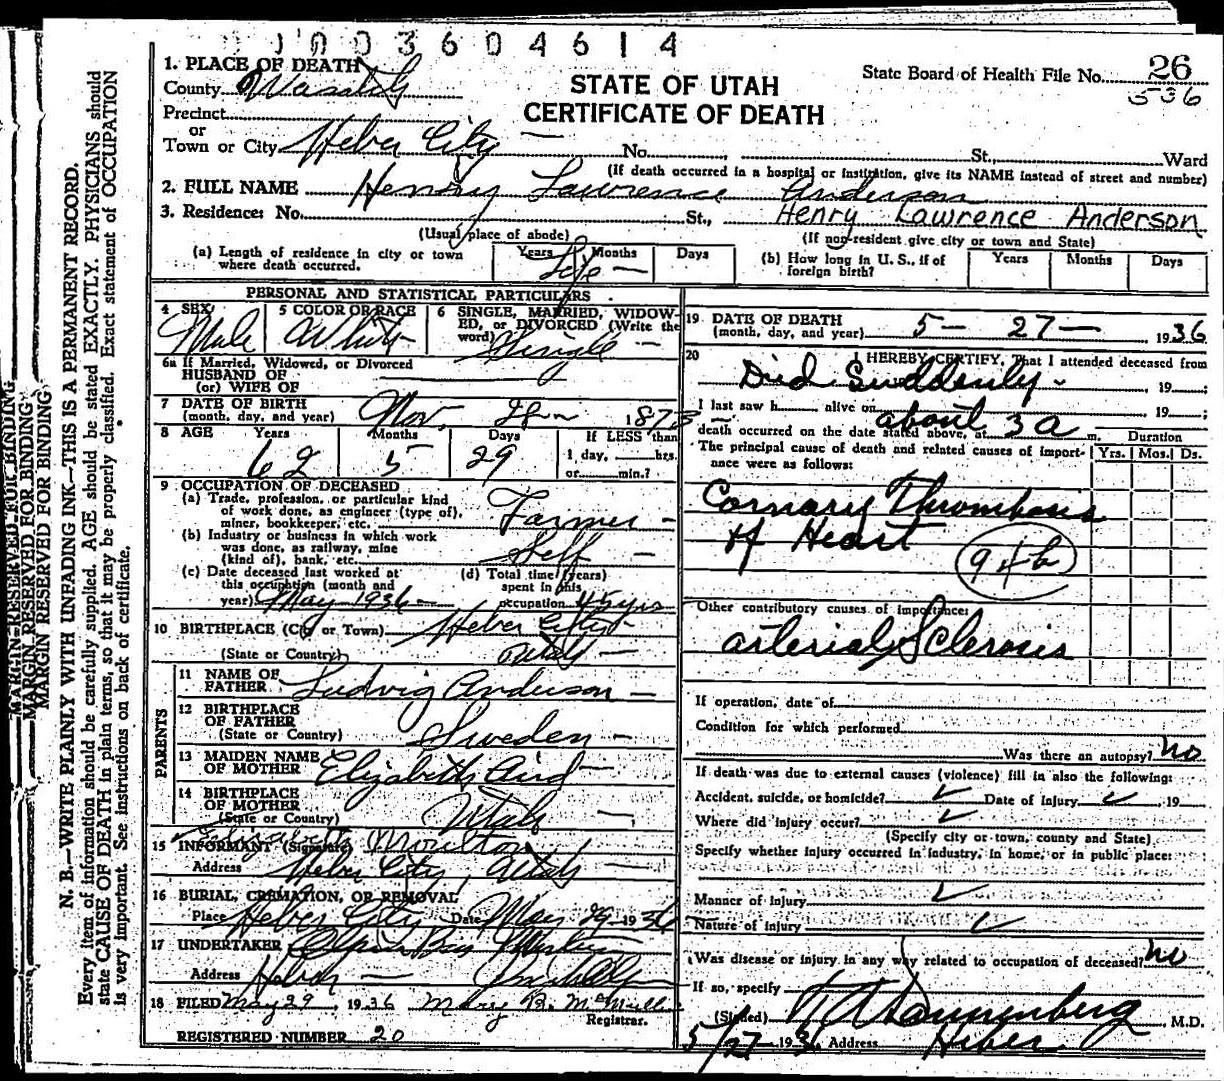 0 1 0 0 3 6 0 4 6 1 4
1. PLACE OF DEATH
STATE OF UTAH
CERTIFICATE OF DEATH
State Board of Health File No. 26
536
County Wasatch
Precinct
or
Town or City Heber City No. , St., Ward
(If death occurred in a hospital or institution, give its NAME instead of street and number)
2. FULL NAME Henry Lawrence Anderson
3. Residence: No. St., Henry Lawrence Anderson
(Usual place of abode) (If non-resident give city or town and State)
(a) Length of residence in city or town where death occurred. Years Months Days
Life —
(b) How long in U. S., if of foreign birth? Years Months Days
PERSONAL AND STATISTICAL PARTICULARS
4 SEX Male
5 COLOR OR RACE White
6 SINGLE, MARRIED, WIDOWED, or DIVORCED (Write the word) Single —
6a If Married, Widowed, or Divorced
HUSBAND OF
(or) WIFE OF
7 DATE OF BIRTH
(month, day, and year) Nov. 1873
8 AGE Years Months Days If LESS than
62 5 29 1 day, hrs.
or min.?
9 OCCUPATION OF DECEASED
(a) Trade, profession, or particular kind
of work done, as engineer (type of),
miner, bookkeeper, etc. Farmer —
(b) Industry or business in which work
was done, as railway, mine
(kind of), bank, etc. Self —
(c) Date deceased last worked at
this occupation (month and
year) May 1936 —
(d) Total time (years)
spent in this
occupation 45 yrs
10 BIRTHPLACE (City or Town) Heber City
(State or Country) Utah —
PARENTS
11 NAME OF
FATHER Ludvig Anderson —
12 BIRTHPLACE
OF FATHER
(State or Country) Sweden —
13 MAIDEN NAME
OF MOTHER Elizabeth Aird —
14 BIRTHPLACE
OF MOTHER
(State or Country) Utah —
15 INFORMANT (Signature) Moulton
Address Heber City, Utah
16 BURIAL, CREMATION, OR REMOVAL
Place Heber City Date May 29 1936
17 UNDERTAKER
Address Heber —
18 FILED May 29 1936 Mary B. McMullin
Registrar.
REGISTERED NUMBER 20
19 DATE OF DEATH
(month, day, and year) 5 — 27 — 1936
20 I HEREBY CERTIFY, That I attended deceased from
Died Suddenly - , 19 ;
I last saw h alive on , 19 ;
death occurred on the date stated above, at about 3 a m.
The principal cause of death and related causes of importance were as follows:
Duration
Yrs. Mos. Ds.
Cornary Thrombosis
of Heart
94b
Other contributory causes of importance:
arterial Sclerosis
If operation, date of
Condition for which performed
Was there an autopsy? no
If death was due to external causes (violence) fill in also the following:
Accident, suicide, or homicide? ✓ Date of injury ✓ , 19
Where did injury occur? ✓
(Specify city or town, county and State)
Specify whether injury occurred in industry, in home, or in public place:
Manner of injury ✓
Nature of injury ✓
Was disease or injury in any way related to occupation of deceased? no
If so, specify
(Signed) Dannenberg , M.D.
5/27 1936 Address Heber
MARGIN RESERVED FOR BINDING
MARGIN RESERVED FOR BINDING
MARGIN RESERVED FOR BINDING
N. B.—WRITE PLAINLY WITH UNFADING INK—THIS IS A PERMANENT RECORD.
Every item of information should be carefully supplied. AGE should be stated EXACTLY. PHYSICIANS should
state CAUSE OF DEATH in plain terms, so that it may be properly classified. Exact statement of OCCUPATION
is very important. See instructions on back of certificate.